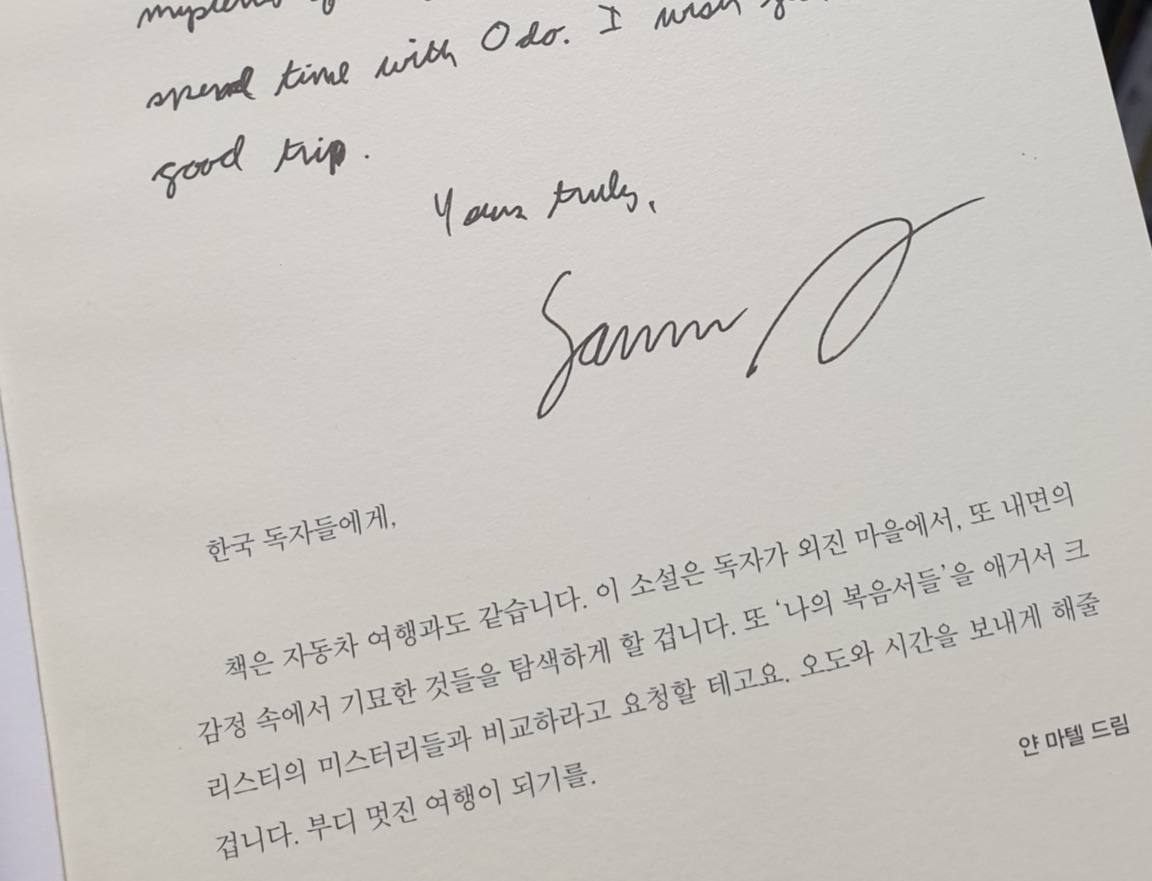 spend time with Odo. I wish
good trip.
Yours truly,
한국 독자들에게,
책은 자동차 여행과도 같습니다. 이 소설은 독자가 외진 마을에서, 또 내면의
감정 속에서 기묘한 것들을 탐색하게 할 겁니다. 또 ‘나의 복음서들’을 애거서 크
리스티의 미스터리들과 비교하라고 요청할 테고요. 오도와 시간을 보내게 해줄
겁니다. 부디 멋진 여행이 되기를.
얀 마텔 드림